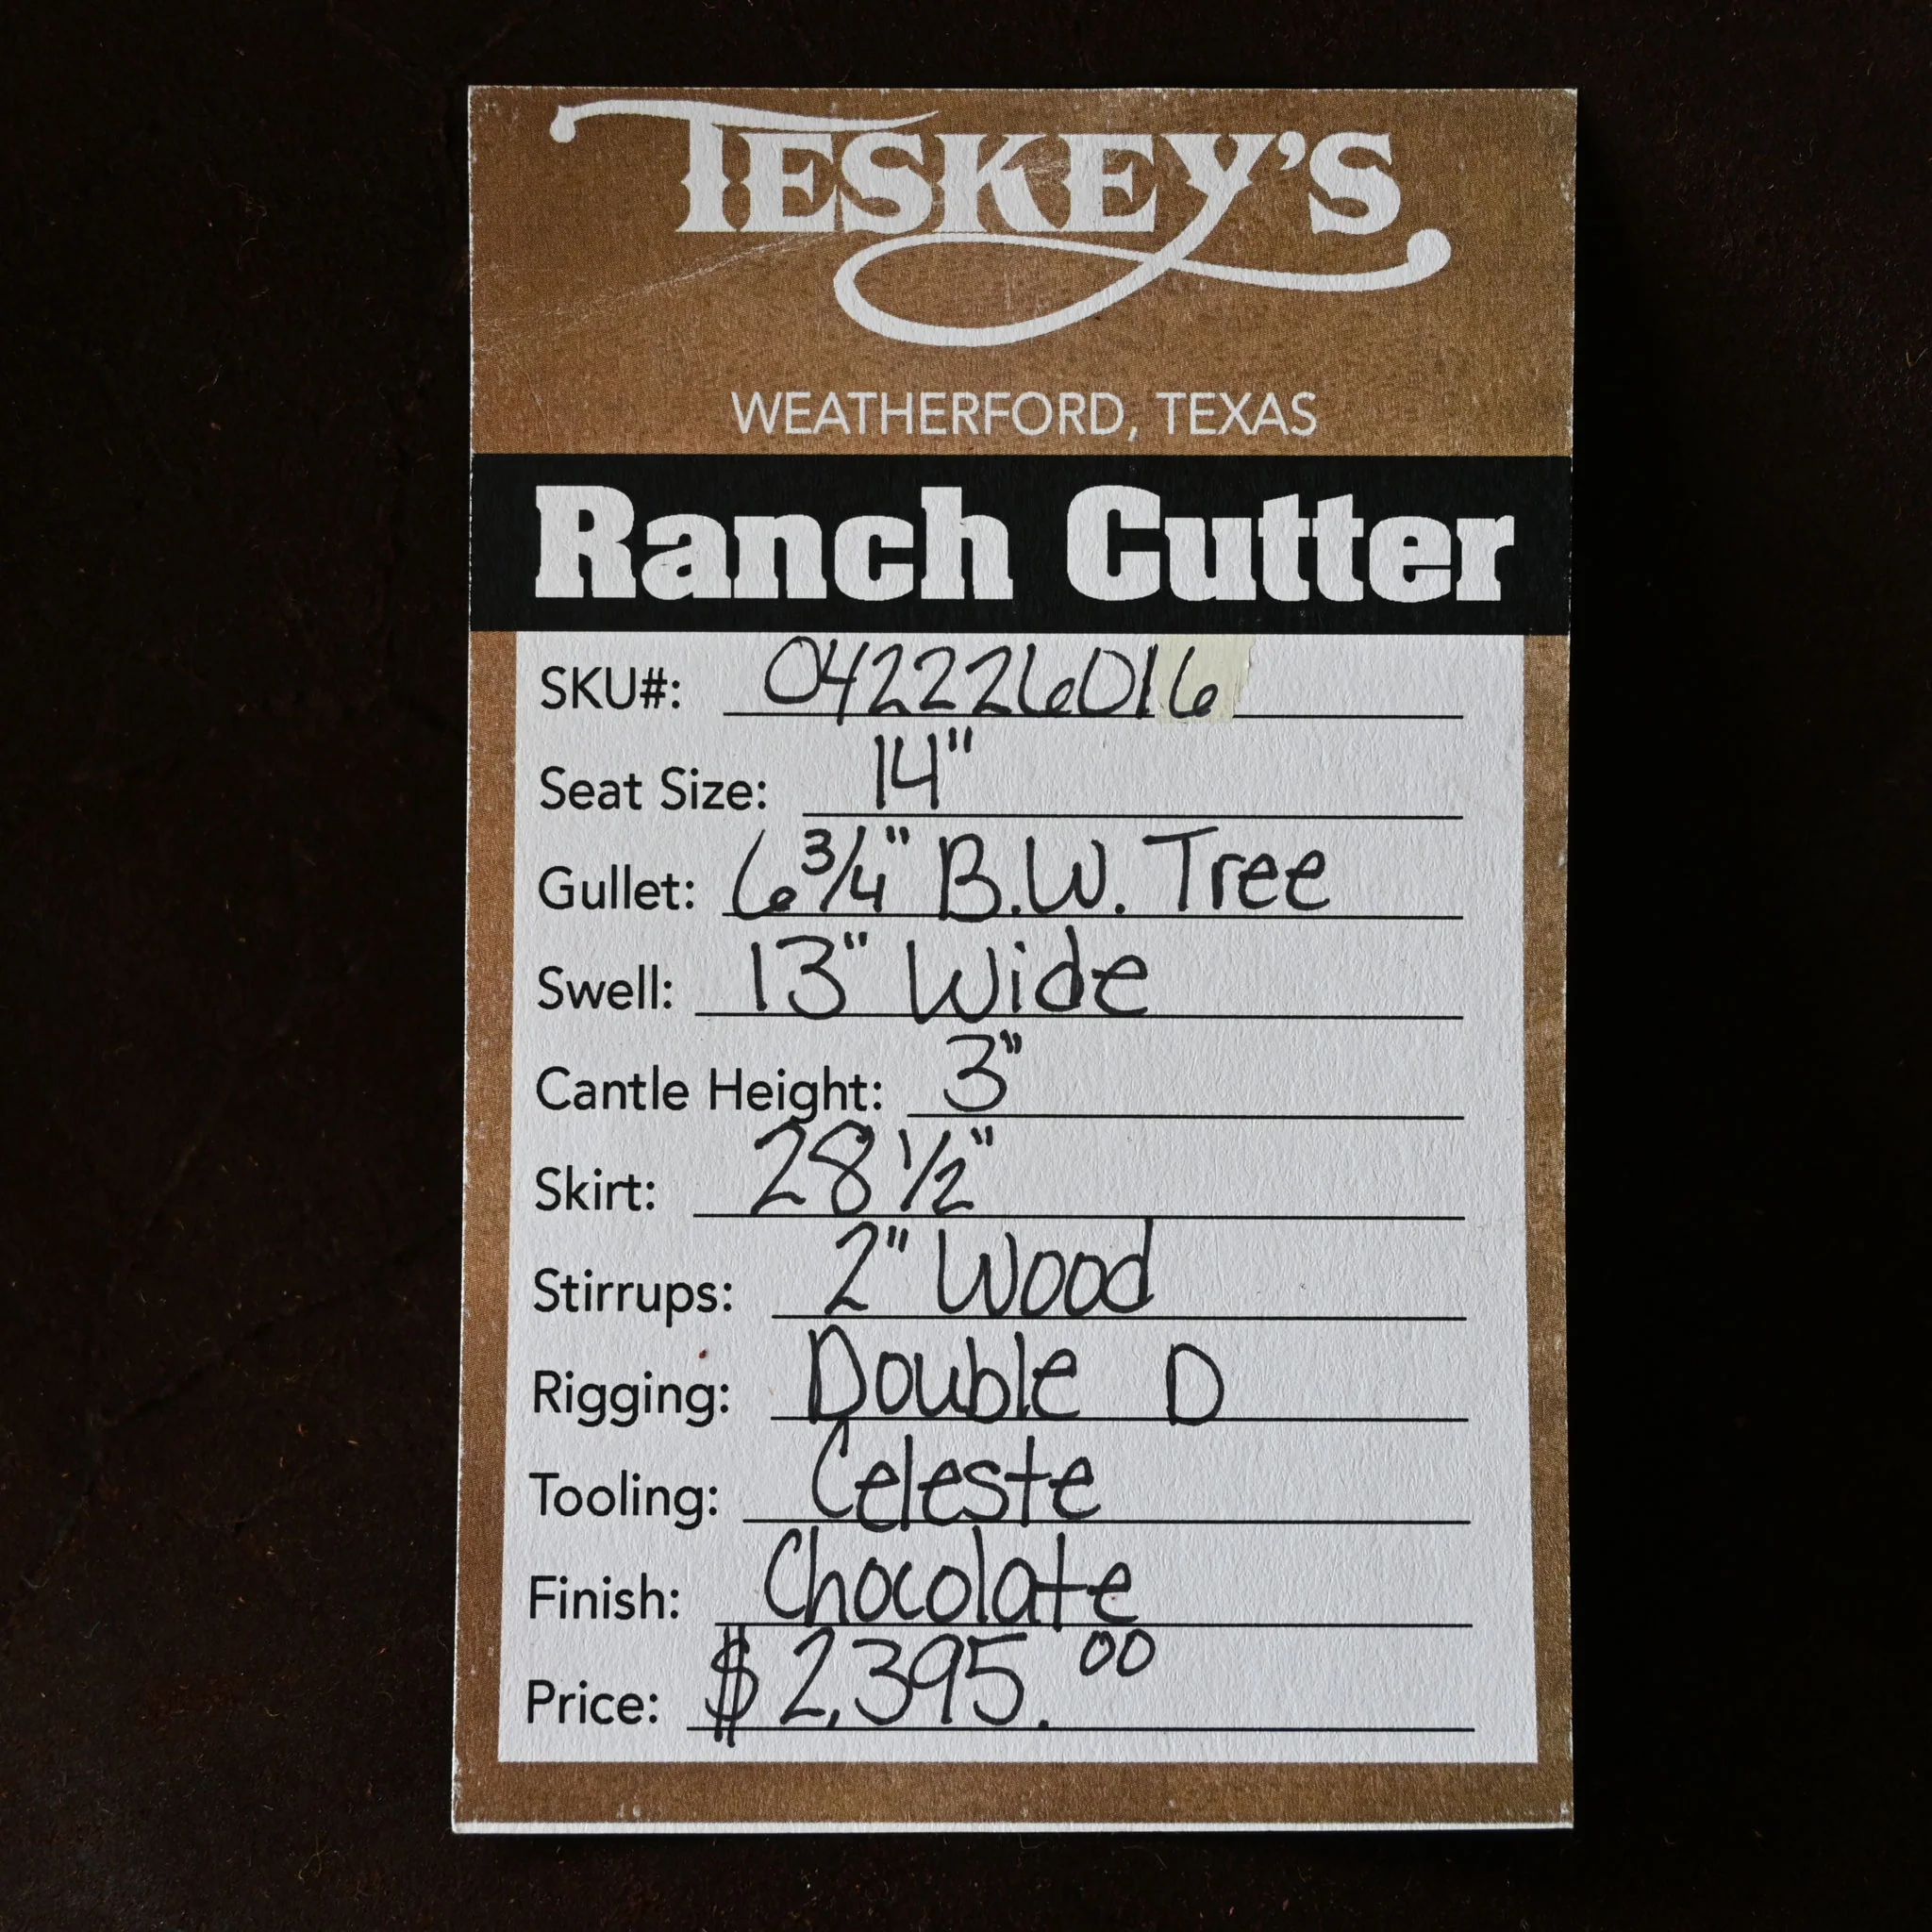 TESKEY'S
WEATHERFORD, TEXAS
Ranch Cutter
SKU#: 042226016
Seat Size: 14"
Gullet: 6 3/4" B.W. Tree
Swell: 13" Wide
Cantle Height: 3"
Skirt: 28 1/2"
Stirrups: 2" Wood
Rigging: Double D
Tooling: Celeste
Finish: Chocolate
Price: $2,395.00